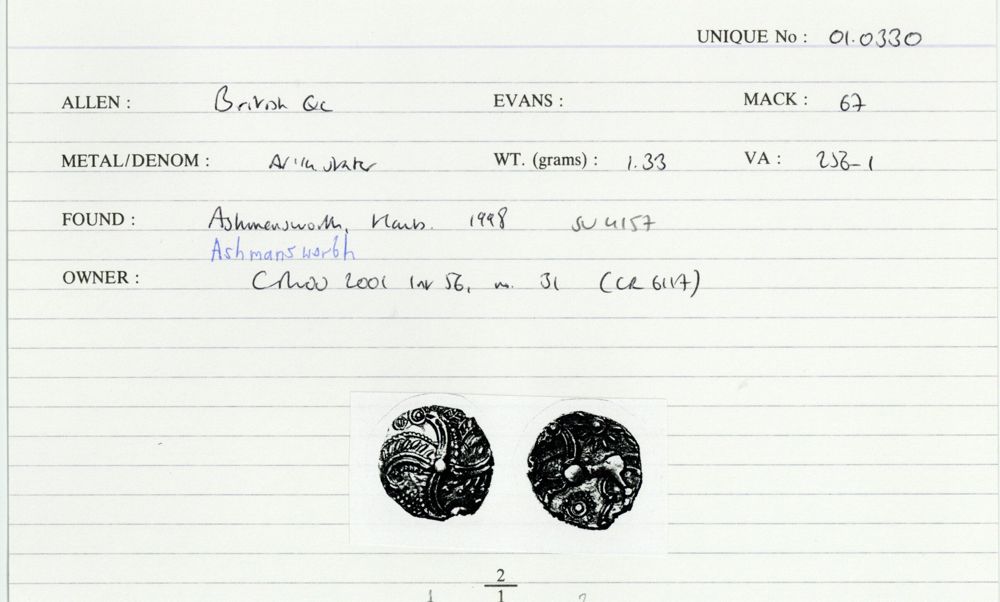 UNIQUE No : 01.0330
ALLEN : British Qc EVANS : MACK : 67
METAL/DENOM : AV 1/4 stater WT. (grams) : 1.33 VA : 256-1
FOUND : Ashmensworth, Hants. 1998 SU 4157
Ashmansworth
OWNER : 2001 56, no. 31 (CR 6117)
2
1